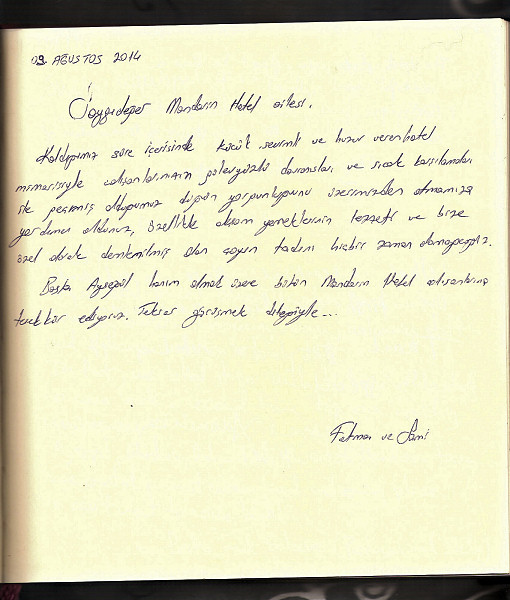 03 AĞUSTOS 2014
Saygıdeğer Mandarin Hotel ailesi.
Kaldığımız süre içerisinde küçük, sevimli ve huzur veren hotel
mimarisiyle çalışanlarınızın güleryüzlü davranışları ve sıcak karşılamaları
ile geçirmiş olduğumuz düğün yorgunluğunu üzerimizden atmamıza
yardımcı oldunuz, özellikle akşam yemeklerinin lezzeti ve bize
özel olarak demlenilmiş olan çayın tadını hiçbir zaman
Başta Ayşegül hanım olmak üzere bütün Mandarin Hotel çalışanlarına
teşekkür ediyoruz. Tekrar görüşmek dileğiyle...
Fatma ve Sami